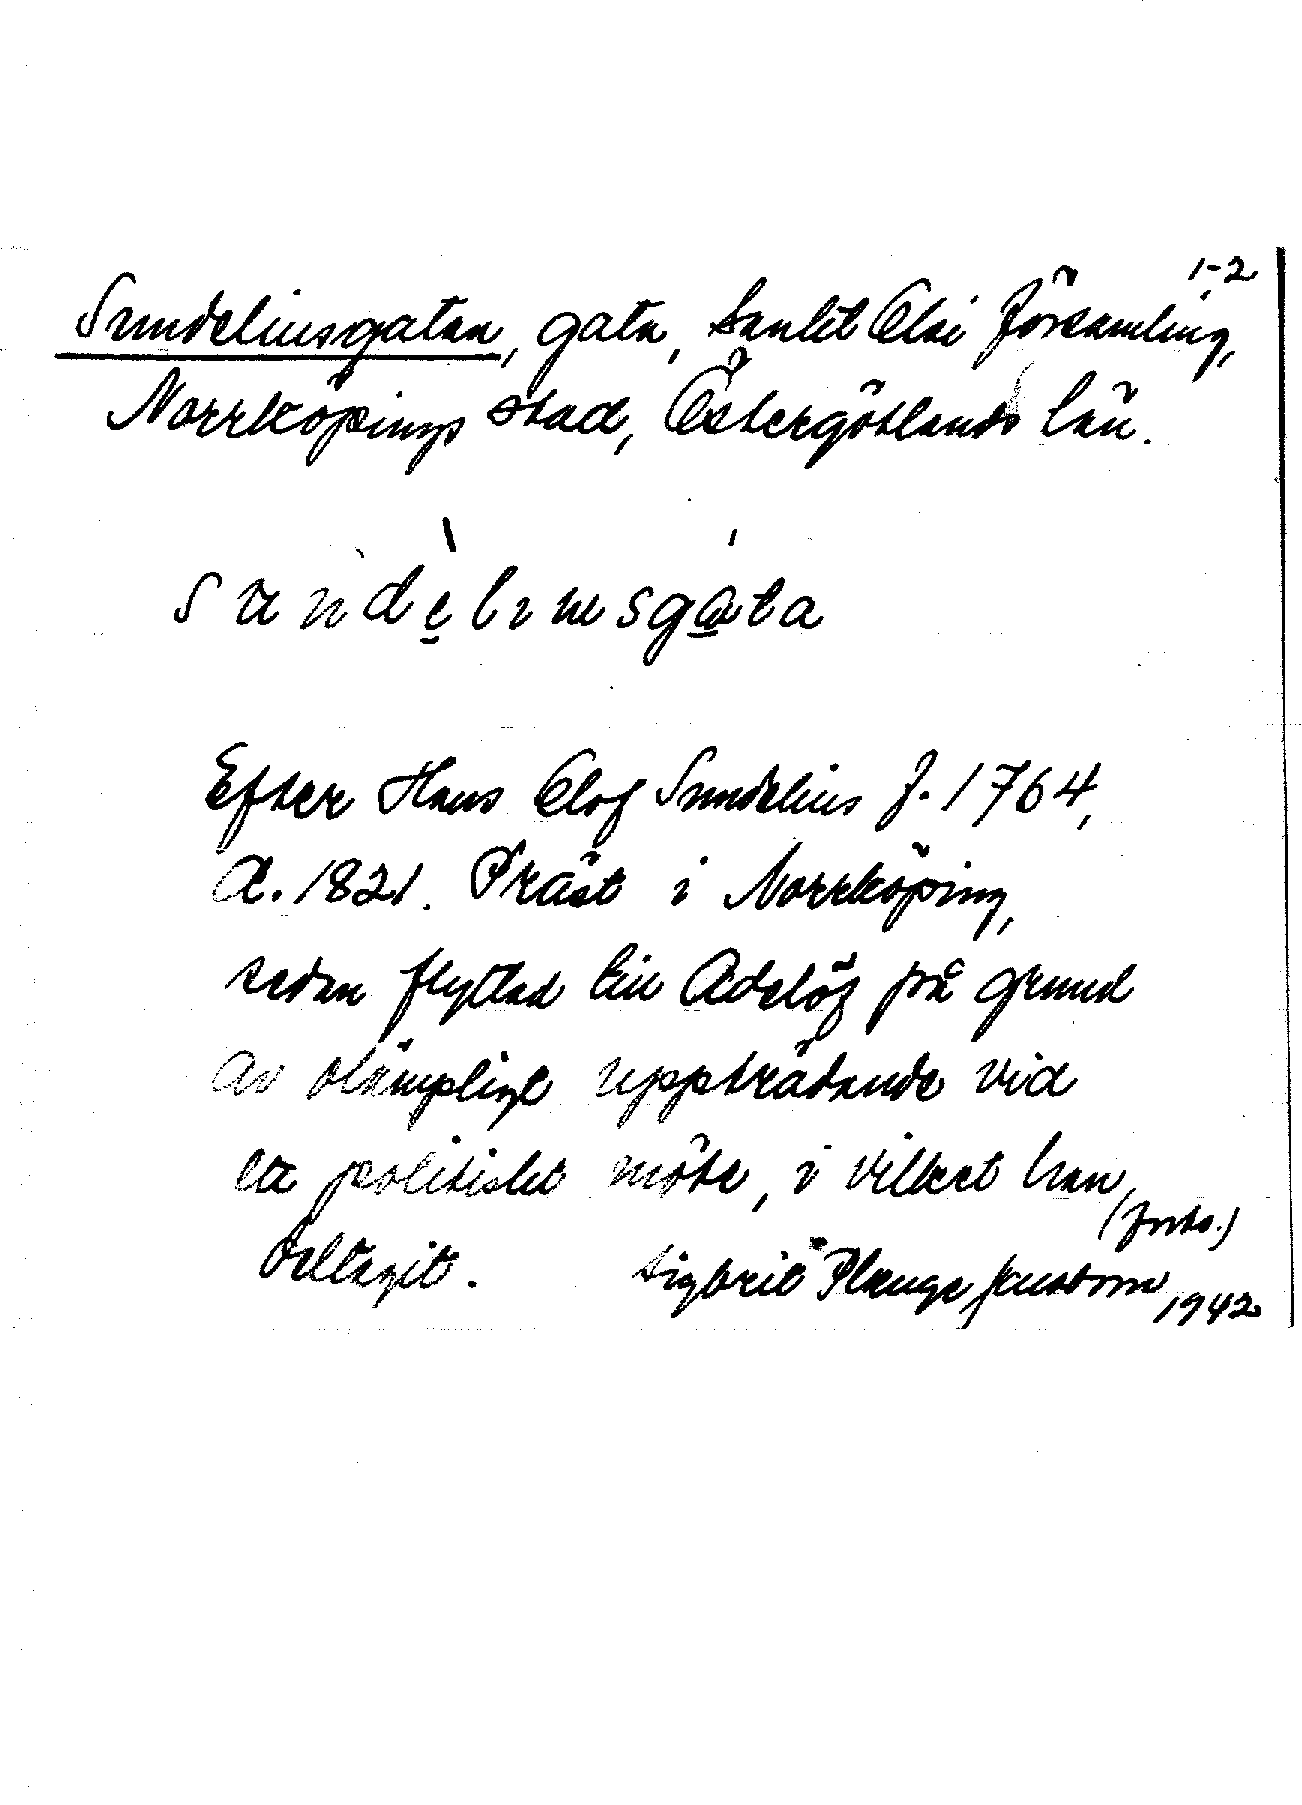 1-2
Sundeliusgatan, gata, Sankt Olai församling,
Norrköpings stad, Östergötlands län.
sundeliusgata
Efter Hans Olof Sundelius f. 1764,
d. 1821. Präst i Norrköping,
sedan flyttad till Adelöf på grund
av olämpligt uppträdande vid
ett politiskt möte, i vilket han
(forts.)
deltagit. Sigbrit Plænge Jacobson
1942